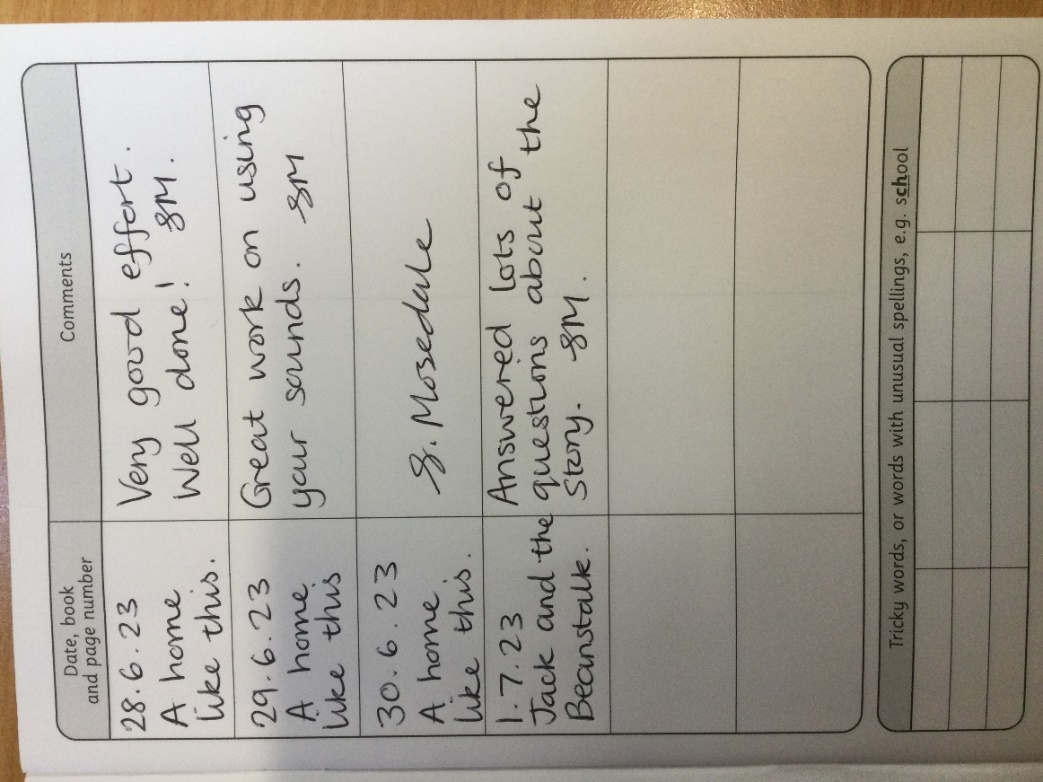 Date, book
and page number
Comments
28.6.23
A home
like this.
Very good effort.
Well done! SM.
29.6.23
A home
like this
Great work on using
your sounds. SM
30.6.23
A home
like this.
S. Mosedale
1.7.23
Jack and the
Beanstalk.
Answered lots of
questions about the
Story. SM.
Tricky words, or words with unusual spellings, e.g. school